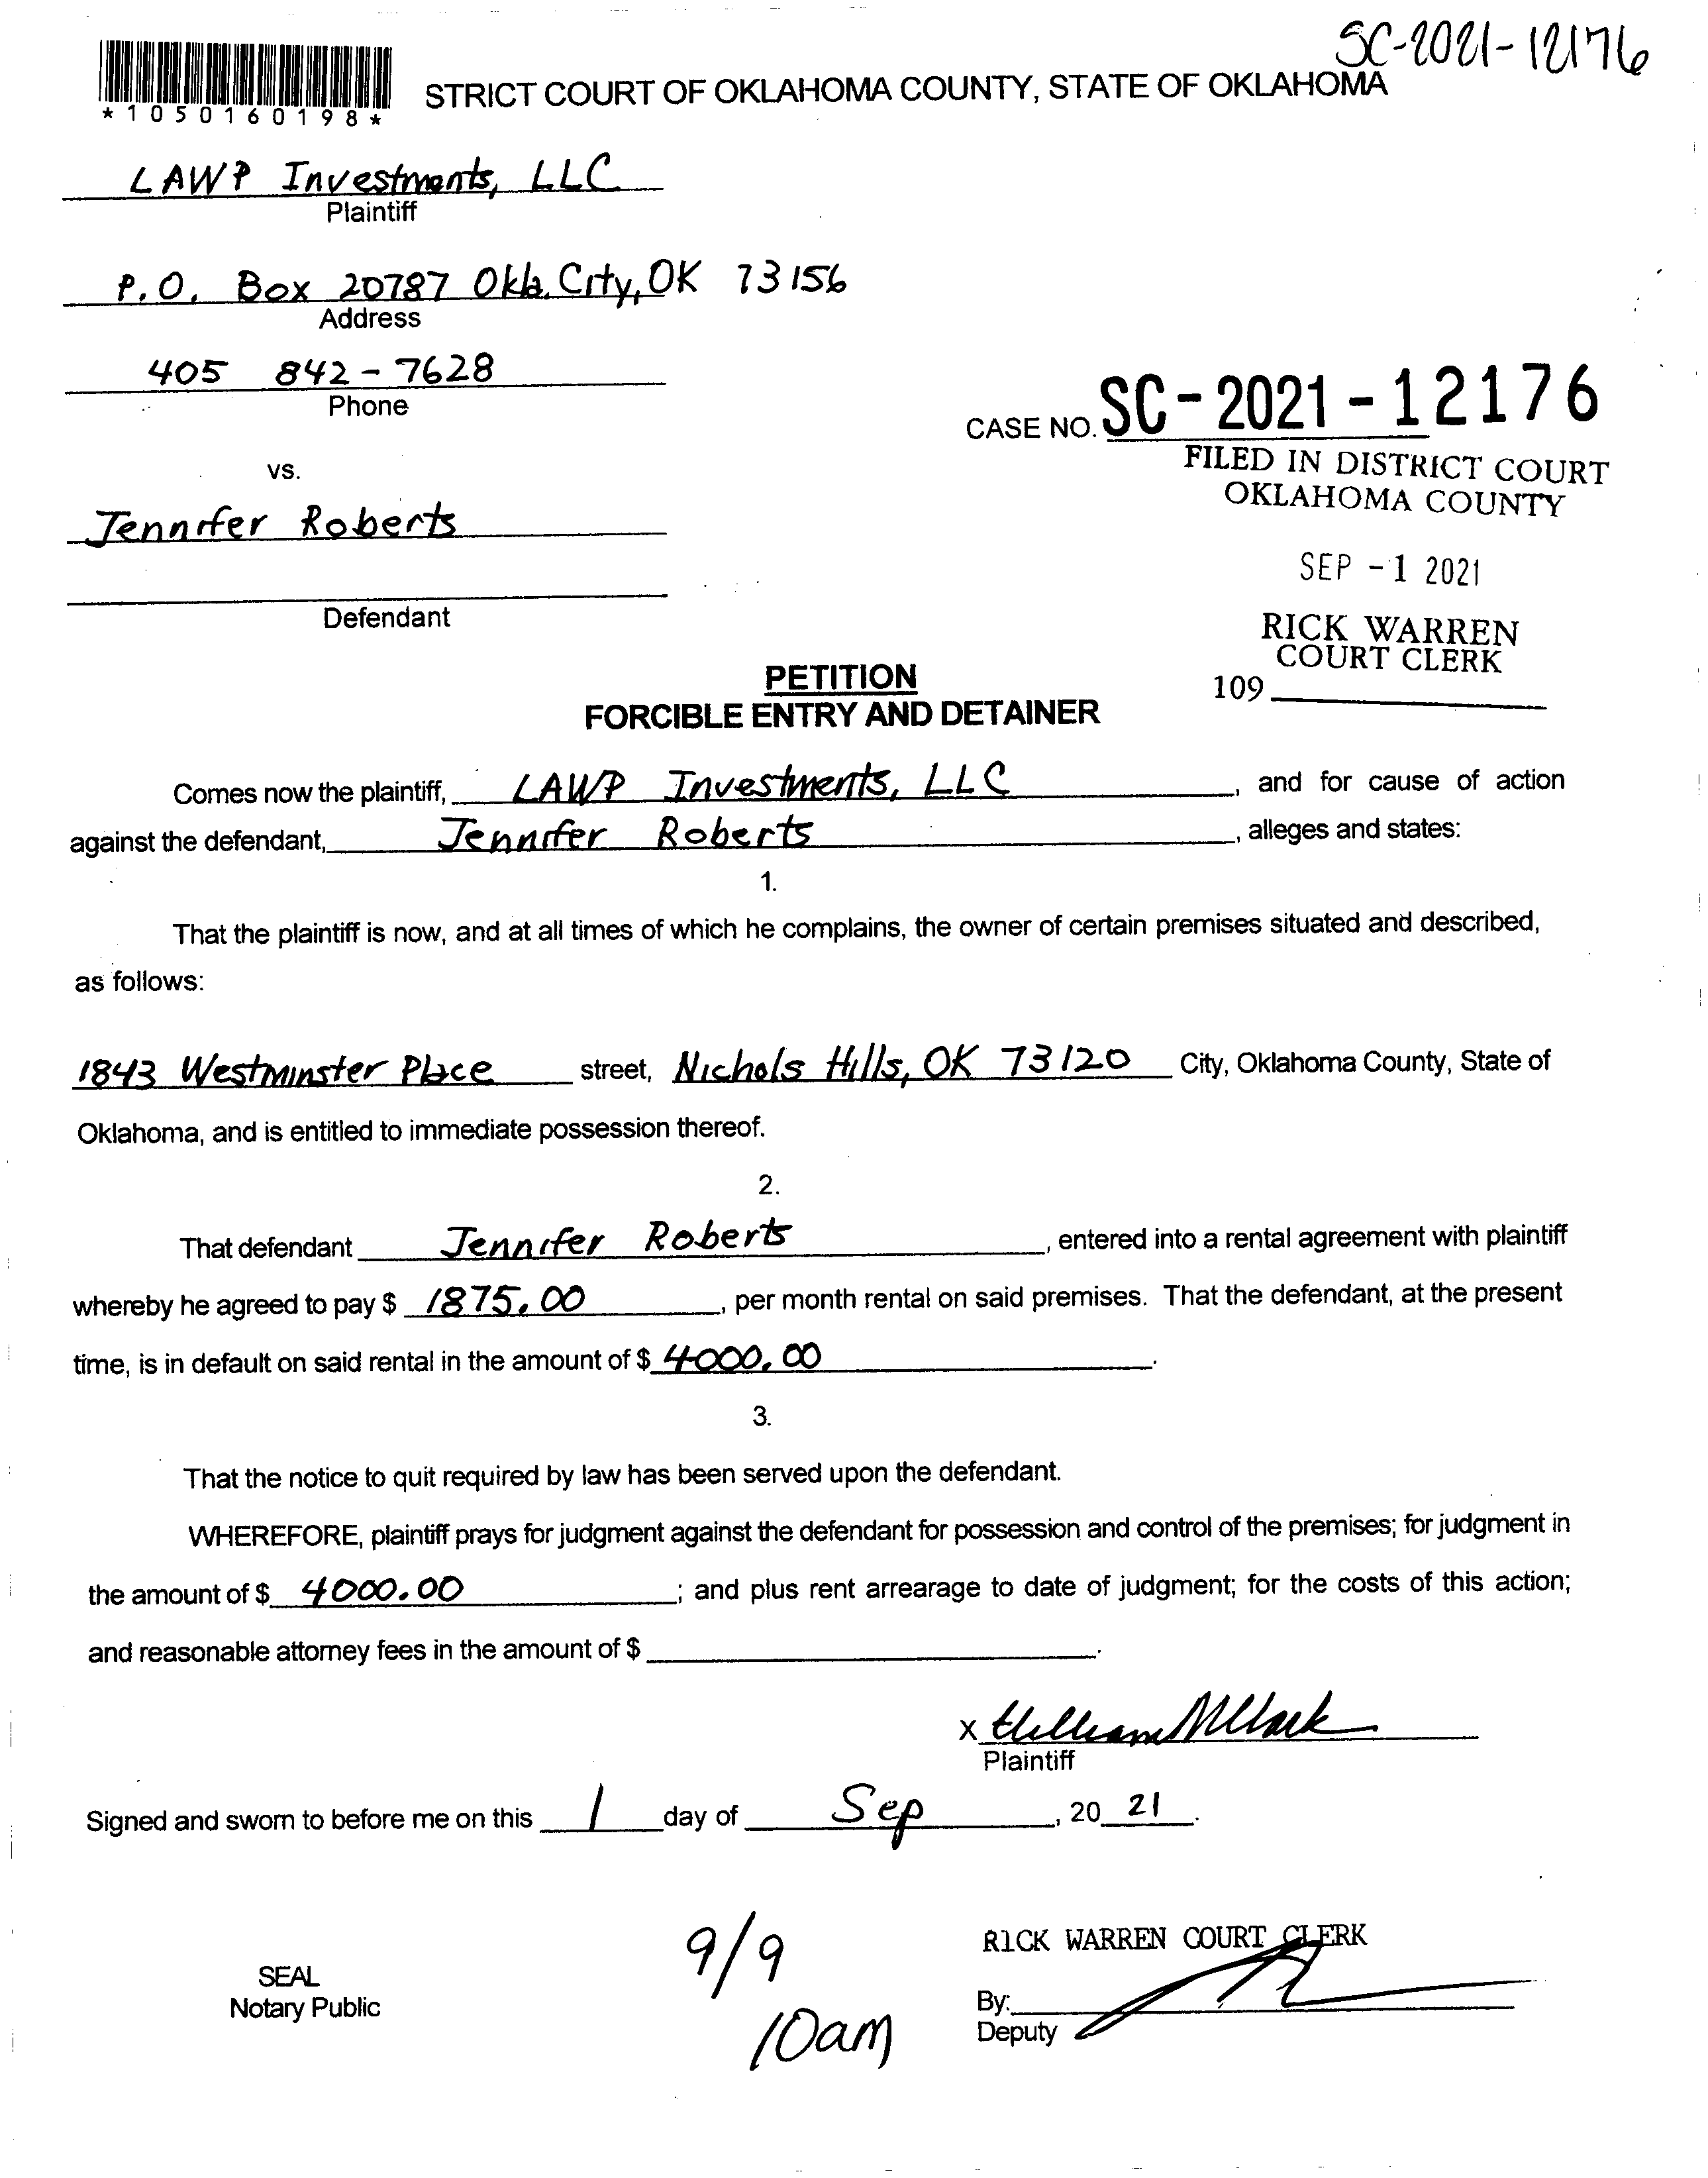 SC-2021-12176
STRICT COURT OF OKLAHOMA COUNTY, STATE OF OKLAHOMA
*1050160198*
LAWP Investments, LLC
Plaintiff
P.O. Box 20787 Okla. City, OK 73156
Address
405 842-7628
Phone
CASE NO. SC-2021-12176
FILED IN DISTRICT COURT
OKLAHOMA COUNTY
vs.
Jennifer Roberts
SEP -1 2021
Defendant
RICK WARREN
COURT CLERK
109
PETITION
FORCIBLE ENTRY AND DETAINER
Comes now the plaintiff, LAWP Investments, LLC, and for cause of action
against the defendant, Jennifer Roberts, alleges and states:
1.
That the plaintiff is now, and at all times of which he complains, the owner of certain premises situated and described,
as follows:
1843 Westminster Place street, Nichols Hills, OK 73120 City, Oklahoma County, State of
Oklahoma, and is entitled to immediate possession thereof.
2.
That defendant Jennifer Roberts, entered into a rental agreement with plaintiff
whereby he agreed to pay $ 1875.00, per month rental on said premises. That the defendant, at the present
time, is in default on said rental in the amount of $ 4000.00.
3.
That the notice to quit required by law has been served upon the defendant.
WHEREFORE, plaintiff prays for judgment against the defendant for possession and control of the premises; for judgment in
the amount of $ 4000.00; and plus rent arrearage to date of judgment; for the costs of this action;
and reasonable attorney fees in the amount of $.
X
Plaintiff
Signed and sworn to before me on this 1 day of Sep, 20 21.
9/9
10am
RICK WARREN COURT CLERK
SEAL
Notary Public
By:
Deputy